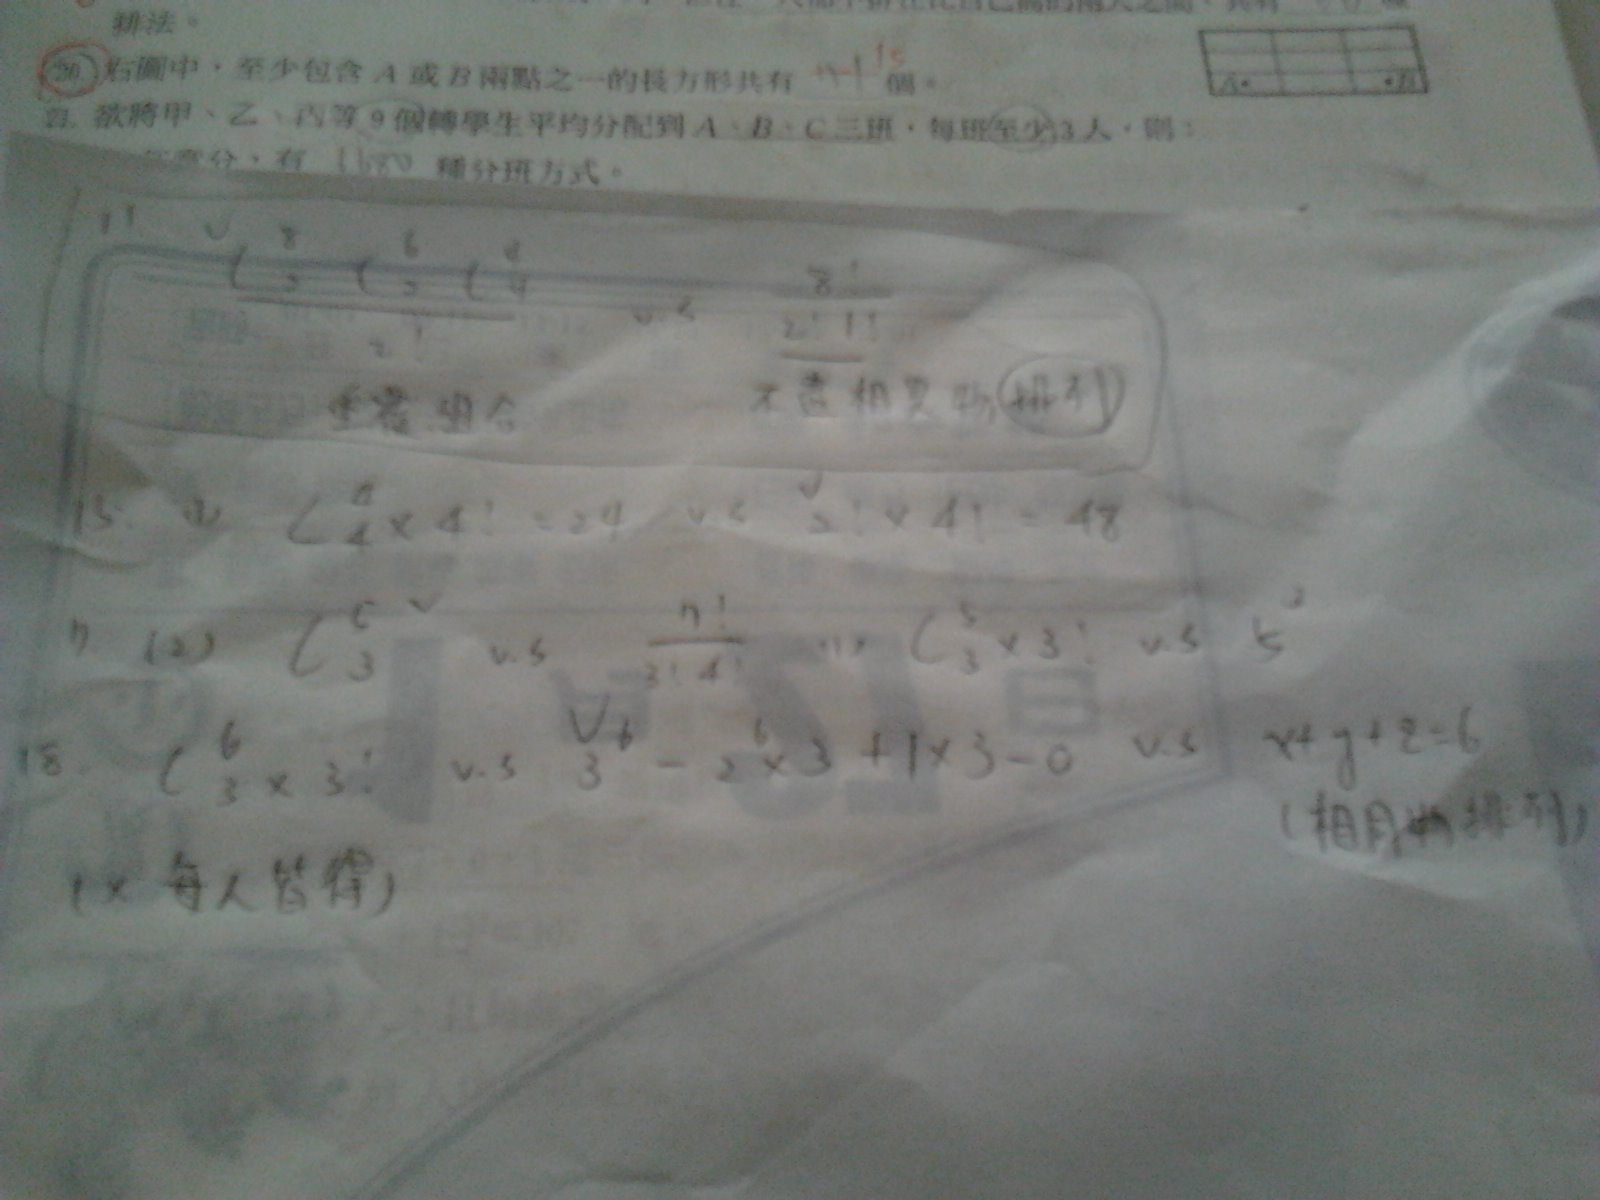 排法。
20. 右圖中，至少包含 A 或 B 兩點之一的長方形共有 15 個。
A• •B
21. 欲將甲、乙、丙等 9 個轉學生平均分配到 A、B、C 三班，每班至少 3 人，則：
意分，有 1680 種分班方式。
11. ✓ C 8 2 C 6 2 C 4 4 / 2! v.s 8! / 2! 1!
重複組合 不盡相異物排列
15. C 4 4 × 4! = 24 v.s ✓ 2! × 4! = 48
7 (2) C 5 3 ✓ v.s 7! / 3! 4! (1) C 5 3 × 3! v.s 5³
18. C 6 3 × 3! v.s ✓ 3⁶ - 2⁶ × 3 + 1 × 3 - 0 v.s x+y+z=6
(相同物排列)
(× 每人皆得)